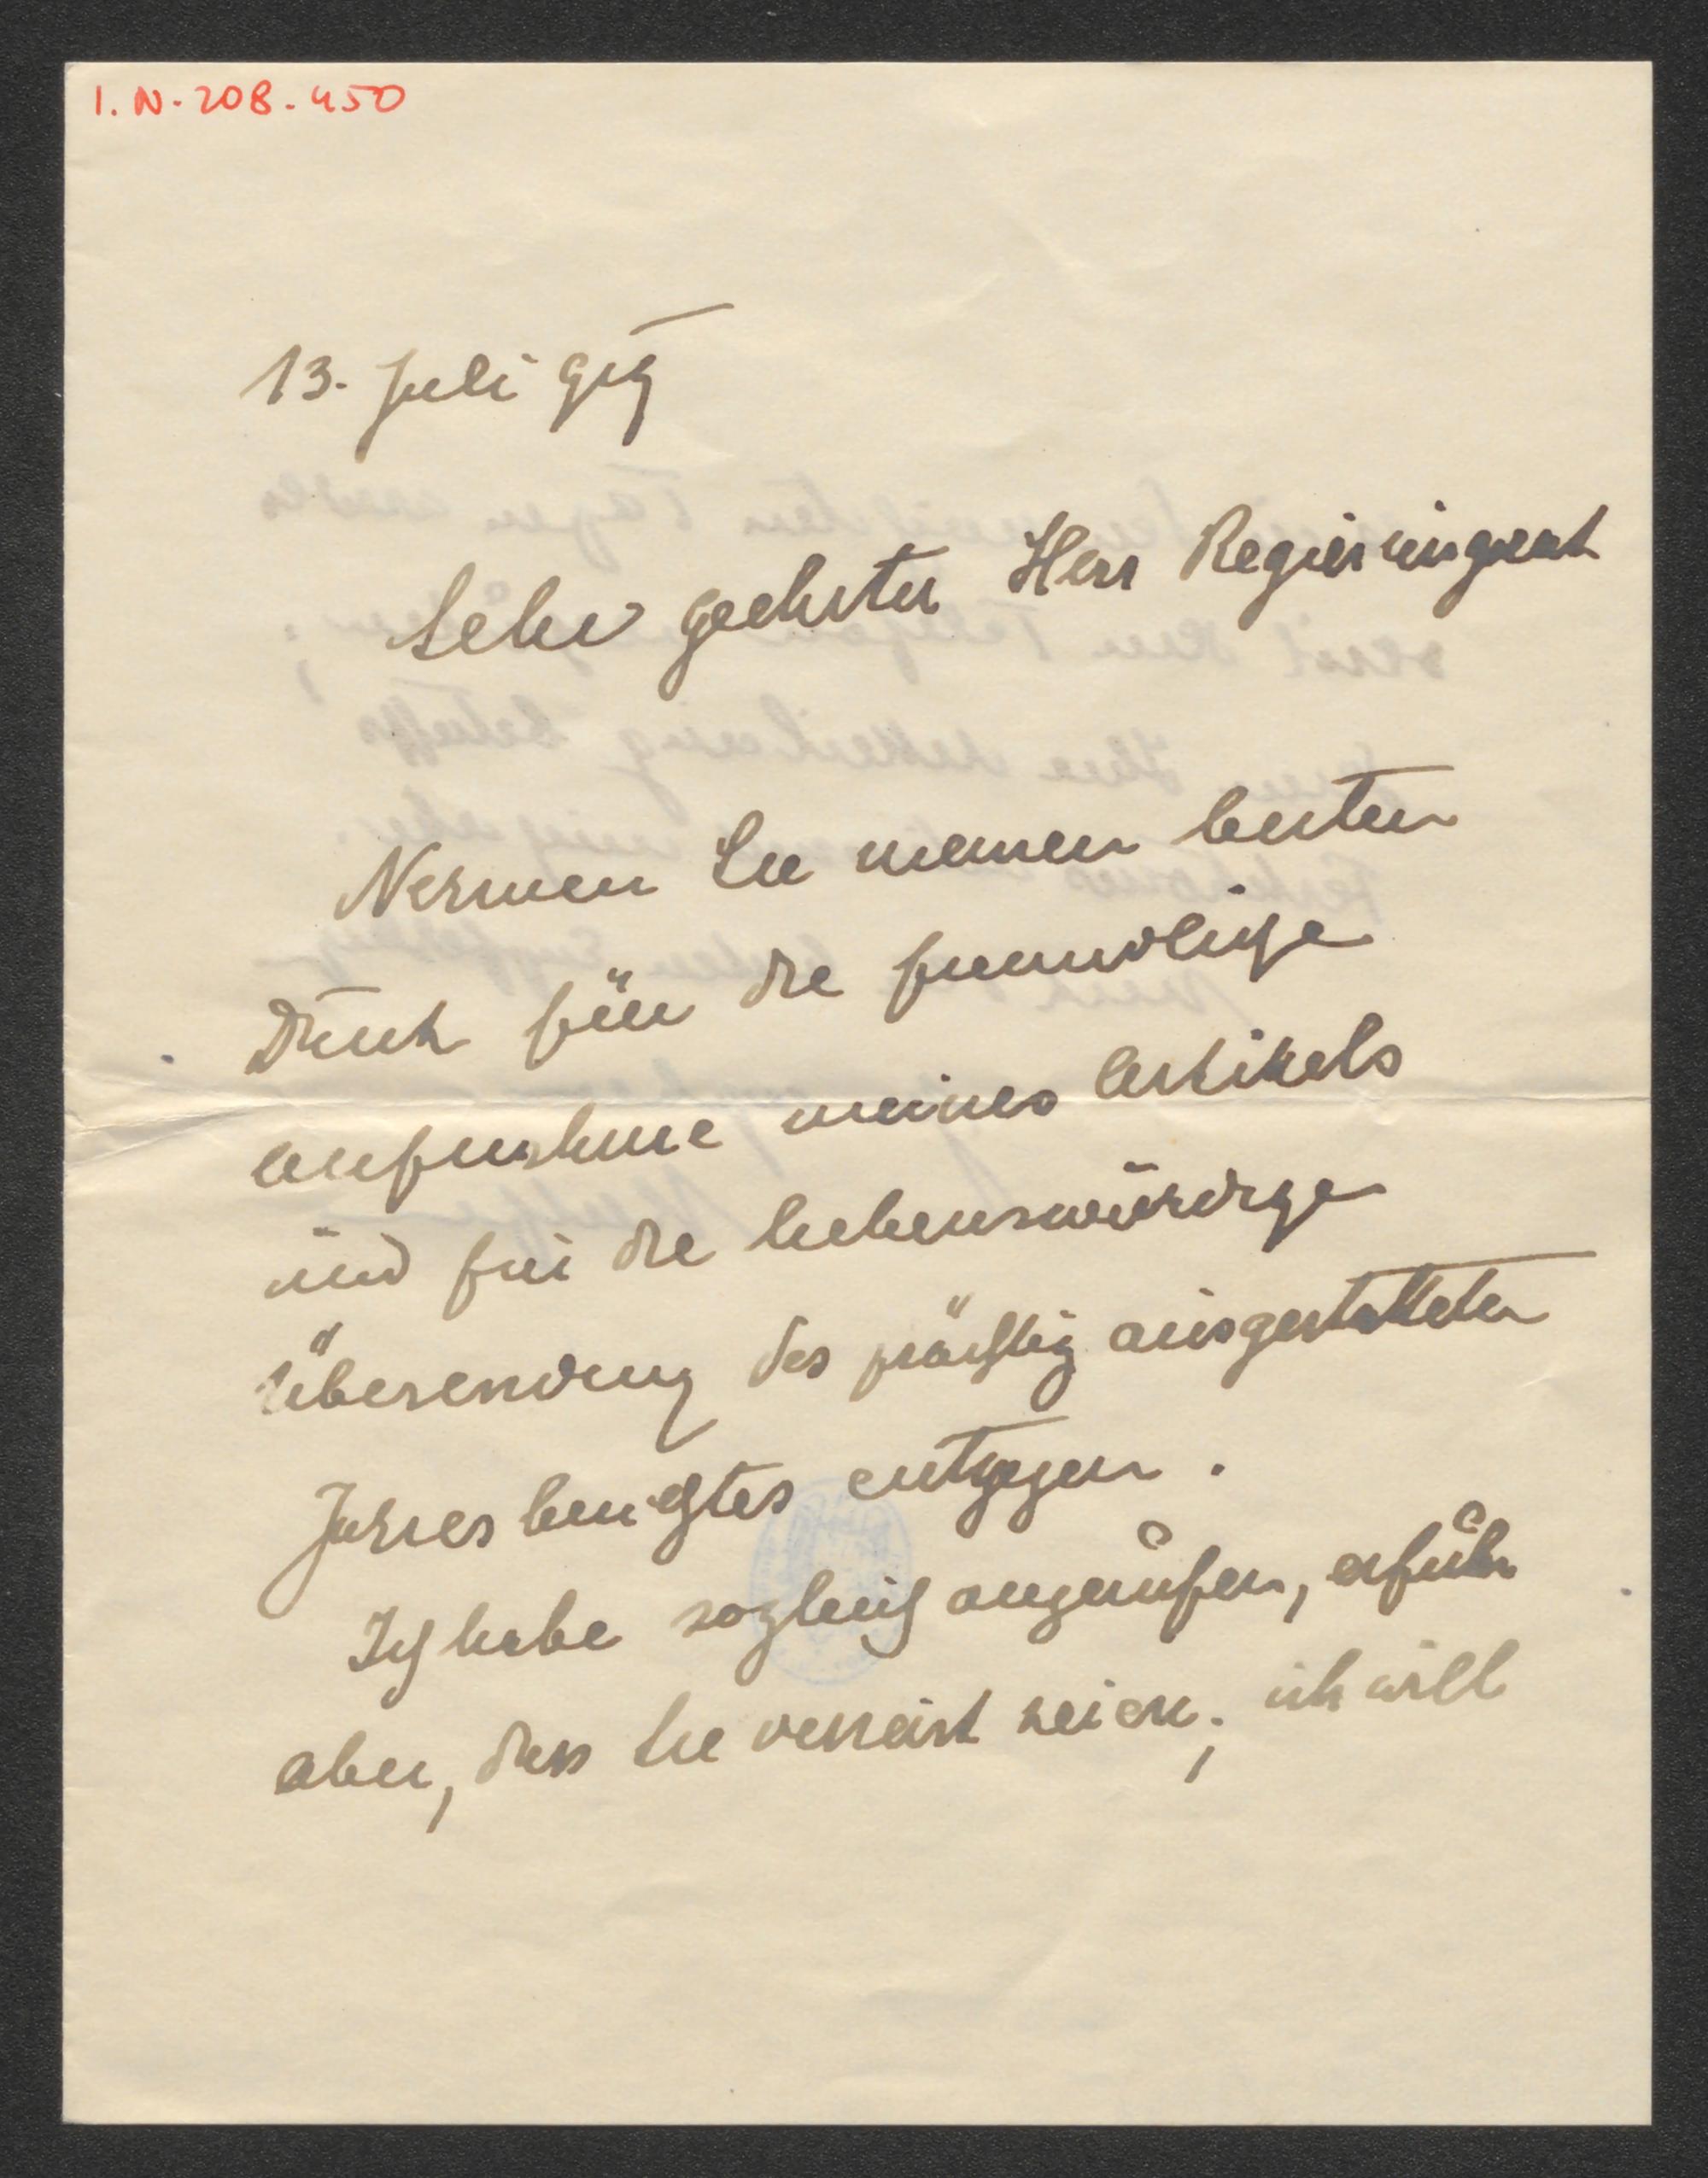 I.N. 208.450
13. Juli 919
Sehr geehrter Herr Regierungsrat
Nehmen Sie meinen besten
Dank für die freundliche
Aufnahme meines Artikels
und für die liebenswürdige
Übersendung des prächtig ausgestatteten
Jahresberichtes entgegen.
Ich habe sogleich angerufen, erfuhr
aber, dass Sie verreist seien; ich will